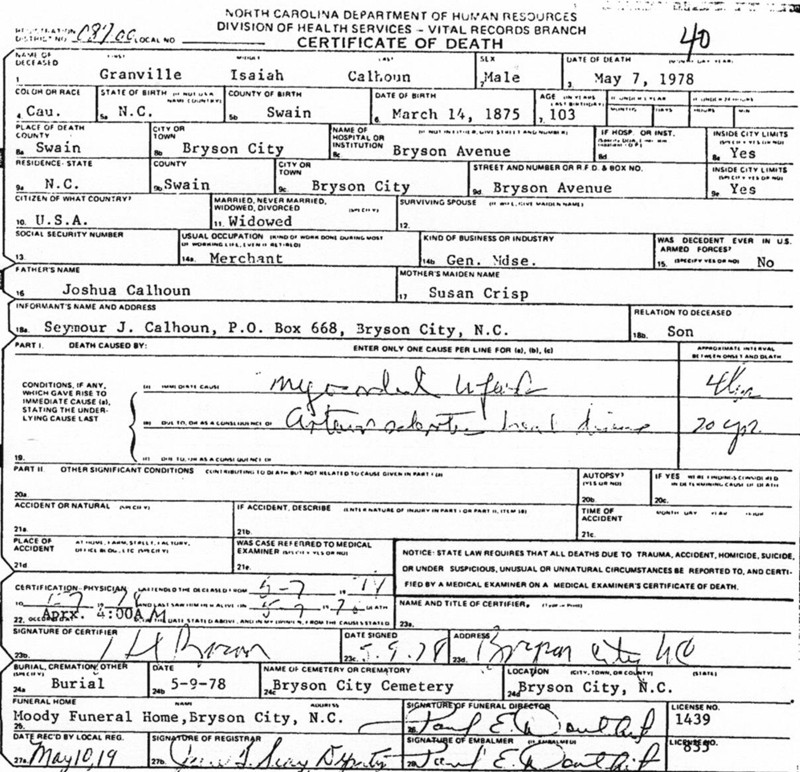 NORTH CAROLINA DEPARTMENT OF HUMAN RESOURCES
DIVISION OF HEALTH SERVICES - VITAL RECORDS BRANCH
CERTIFICATE OF DEATH
REGISTRATION DISTRICT NO. LOCAL NO 40
NAME OF DECEASED FIRST MIDDLE LAST SEX DATE OF DEATH (MONTH, DAY, YEAR)
1 Granville Isaiah Calhoun 2 Male 3 May 7, 1978
COLOR OR RACE STATE OF BIRTH (IF NOT U.S.A. NAME COUNTRY) COUNTY OF BIRTH DATE OF BIRTH AGE (IN YEARS LAST BIRTHDAY) IF UNDER 1 YEAR IF UNDER 24 HOURS
MONTHS DAYS HOURS MIN
4. Cau. 5a N.C. 5b Swain 6. March 14, 1875 7. 103
PLACE OF DEATH COUNTY CITY OR TOWN NAME OF HOSPITAL OR INSTITUTION (IF NOT IN EITHER, GIVE STREET AND NUMBER) IF HOSP. OR INST. INSIDE CITY LIMITS (SPECIFY YES OR NO)
8a Swain 8b Bryson City 8c Bryson Avenue 8d 8e Yes
RESIDENCE-STATE COUNTY CITY OR TOWN STREET AND NUMBER OR R.F.D. & BOX NO. INSIDE CITY LIMITS (SPECIFY YES OR NO)
9a N.C. 9b Swain 9c Bryson City 9d Bryson Avenue 9e Yes
CITIZEN OF WHAT COUNTRY? MARRIED, NEVER MARRIED, WIDOWED, DIVORCED (SPECIFY) SURVIVING SPOUSE (IF WIFE, GIVE MAIDEN NAME)
10. U.S.A. 11. Widowed 12.
SOCIAL SECURITY NUMBER USUAL OCCUPATION (KIND OF WORK DONE DURING MOST OF WORKING LIFE, EVEN IF RETIRED) KIND OF BUSINESS OR INDUSTRY WAS DECEDENT EVER IN U.S. ARMED FORCES? (SPECIFY YES OR NO)
13. 14a. Merchant 14b Gen. Mdse. 15. No
FATHER'S NAME MOTHER'S MAIDEN NAME
16 Joshua Calhoun 17 Susan Crisp
INFORMANT'S NAME AND ADDRESS RELATION TO DECEASED
18a. Seymour J. Calhoun, P.O. Box 668, Bryson City, N.C. 18b. Son
PART I. DEATH CAUSED BY: ENTER ONLY ONE CAUSE PER LINE FOR (a), (b), (c) APPROXIMATE INTERVAL BETWEEN ONSET AND DEATH
CONDITIONS, IF ANY, WHICH GAVE RISE TO IMMEDIATE CAUSE (a), STATING THE UNDERLYING CAUSE LAST
(a) IMMEDIATE CAUSE
(b) DUE TO, OR AS A CONSEQUENCE OF heart disease 20 yrs.
19. (c) DUE TO, OR AS A CONSEQUENCE OF
PART II. OTHER SIGNIFICANT CONDITIONS CONTRIBUTING TO DEATH BUT NOT RELATED TO CAUSE GIVEN IN PART I (a) AUTOPSY? (YES OR NO) IF YES WERE FINDINGS CONSIDERED IN DETERMINING CAUSE OF DEATH
20a. 20b. 20c.
ACCIDENT OR NATURAL (SPECIFY) IF ACCIDENT, DESCRIBE (ENTER NATURE OF INJURY IN PART I OR PART II, ITEM 18) TIME OF ACCIDENT MONTH DAY YEAR HOUR
21a. 21b. 21c.
PLACE OF ACCIDENT AT HOME, FARM, STREET, FACTORY, OFFICE BLDG., ETC. (SPECIFY) WAS CASE REFERRED TO MEDICAL EXAMINER (SPECIFY YES OR NO)
21d 21e.
NOTICE: STATE LAW REQUIRES THAT ALL DEATHS DUE TO TRAUMA, ACCIDENT, HOMICIDE, SUICIDE,
OR UNDER SUSPICIOUS, UNUSUAL OR UNNATURAL CIRCUMSTANCES BE REPORTED TO, AND CERTI-
FIED BY A MEDICAL EXAMINER ON A MEDICAL EXAMINER'S CERTIFICATE OF DEATH.
CERTIFICATION-PHYSICIAN I ATTENDED THE DECEASED FROM 5-7
AND LAST SAW HIM ALIVE ON 5-7 DEATH
Aprx. 4:00A.M
22. OCCURRED DATE STATED ABOVE, AND IN MY OPINION, FROM THE CAUSES STATED
NAME AND TITLE OF CERTIFIER (TYPE OR PRINT)
23a.
SIGNATURE OF CERTIFIER DATE SIGNED ADDRESS
23b. 23c. 5-9-78 23d. Bryson City NC
BURIAL, CREMATION, OTHER (SPECIFY) DATE NAME OF CEMETERY OR CREMATORY LOCATION (CITY, TOWN, OR COUNTY) (STATE)
24a Burial 24b 5-9-78 24c Bryson City Cemetery 24d Bryson City, N.C.
FUNERAL HOME NAME ADDRESS SIGNATURE OF FUNERAL DIRECTOR LICENSE NO.
25. Moody Funeral Home, Bryson City, N.C. 26. 1439
DATE REC'D BY LOCAL REG. SIGNATURE OF REGISTRAR SIGNATURE OF EMBALMER (IF EMBALMED) LICENSE NO.
27a. May 10, 19 27b. Deputy 28.